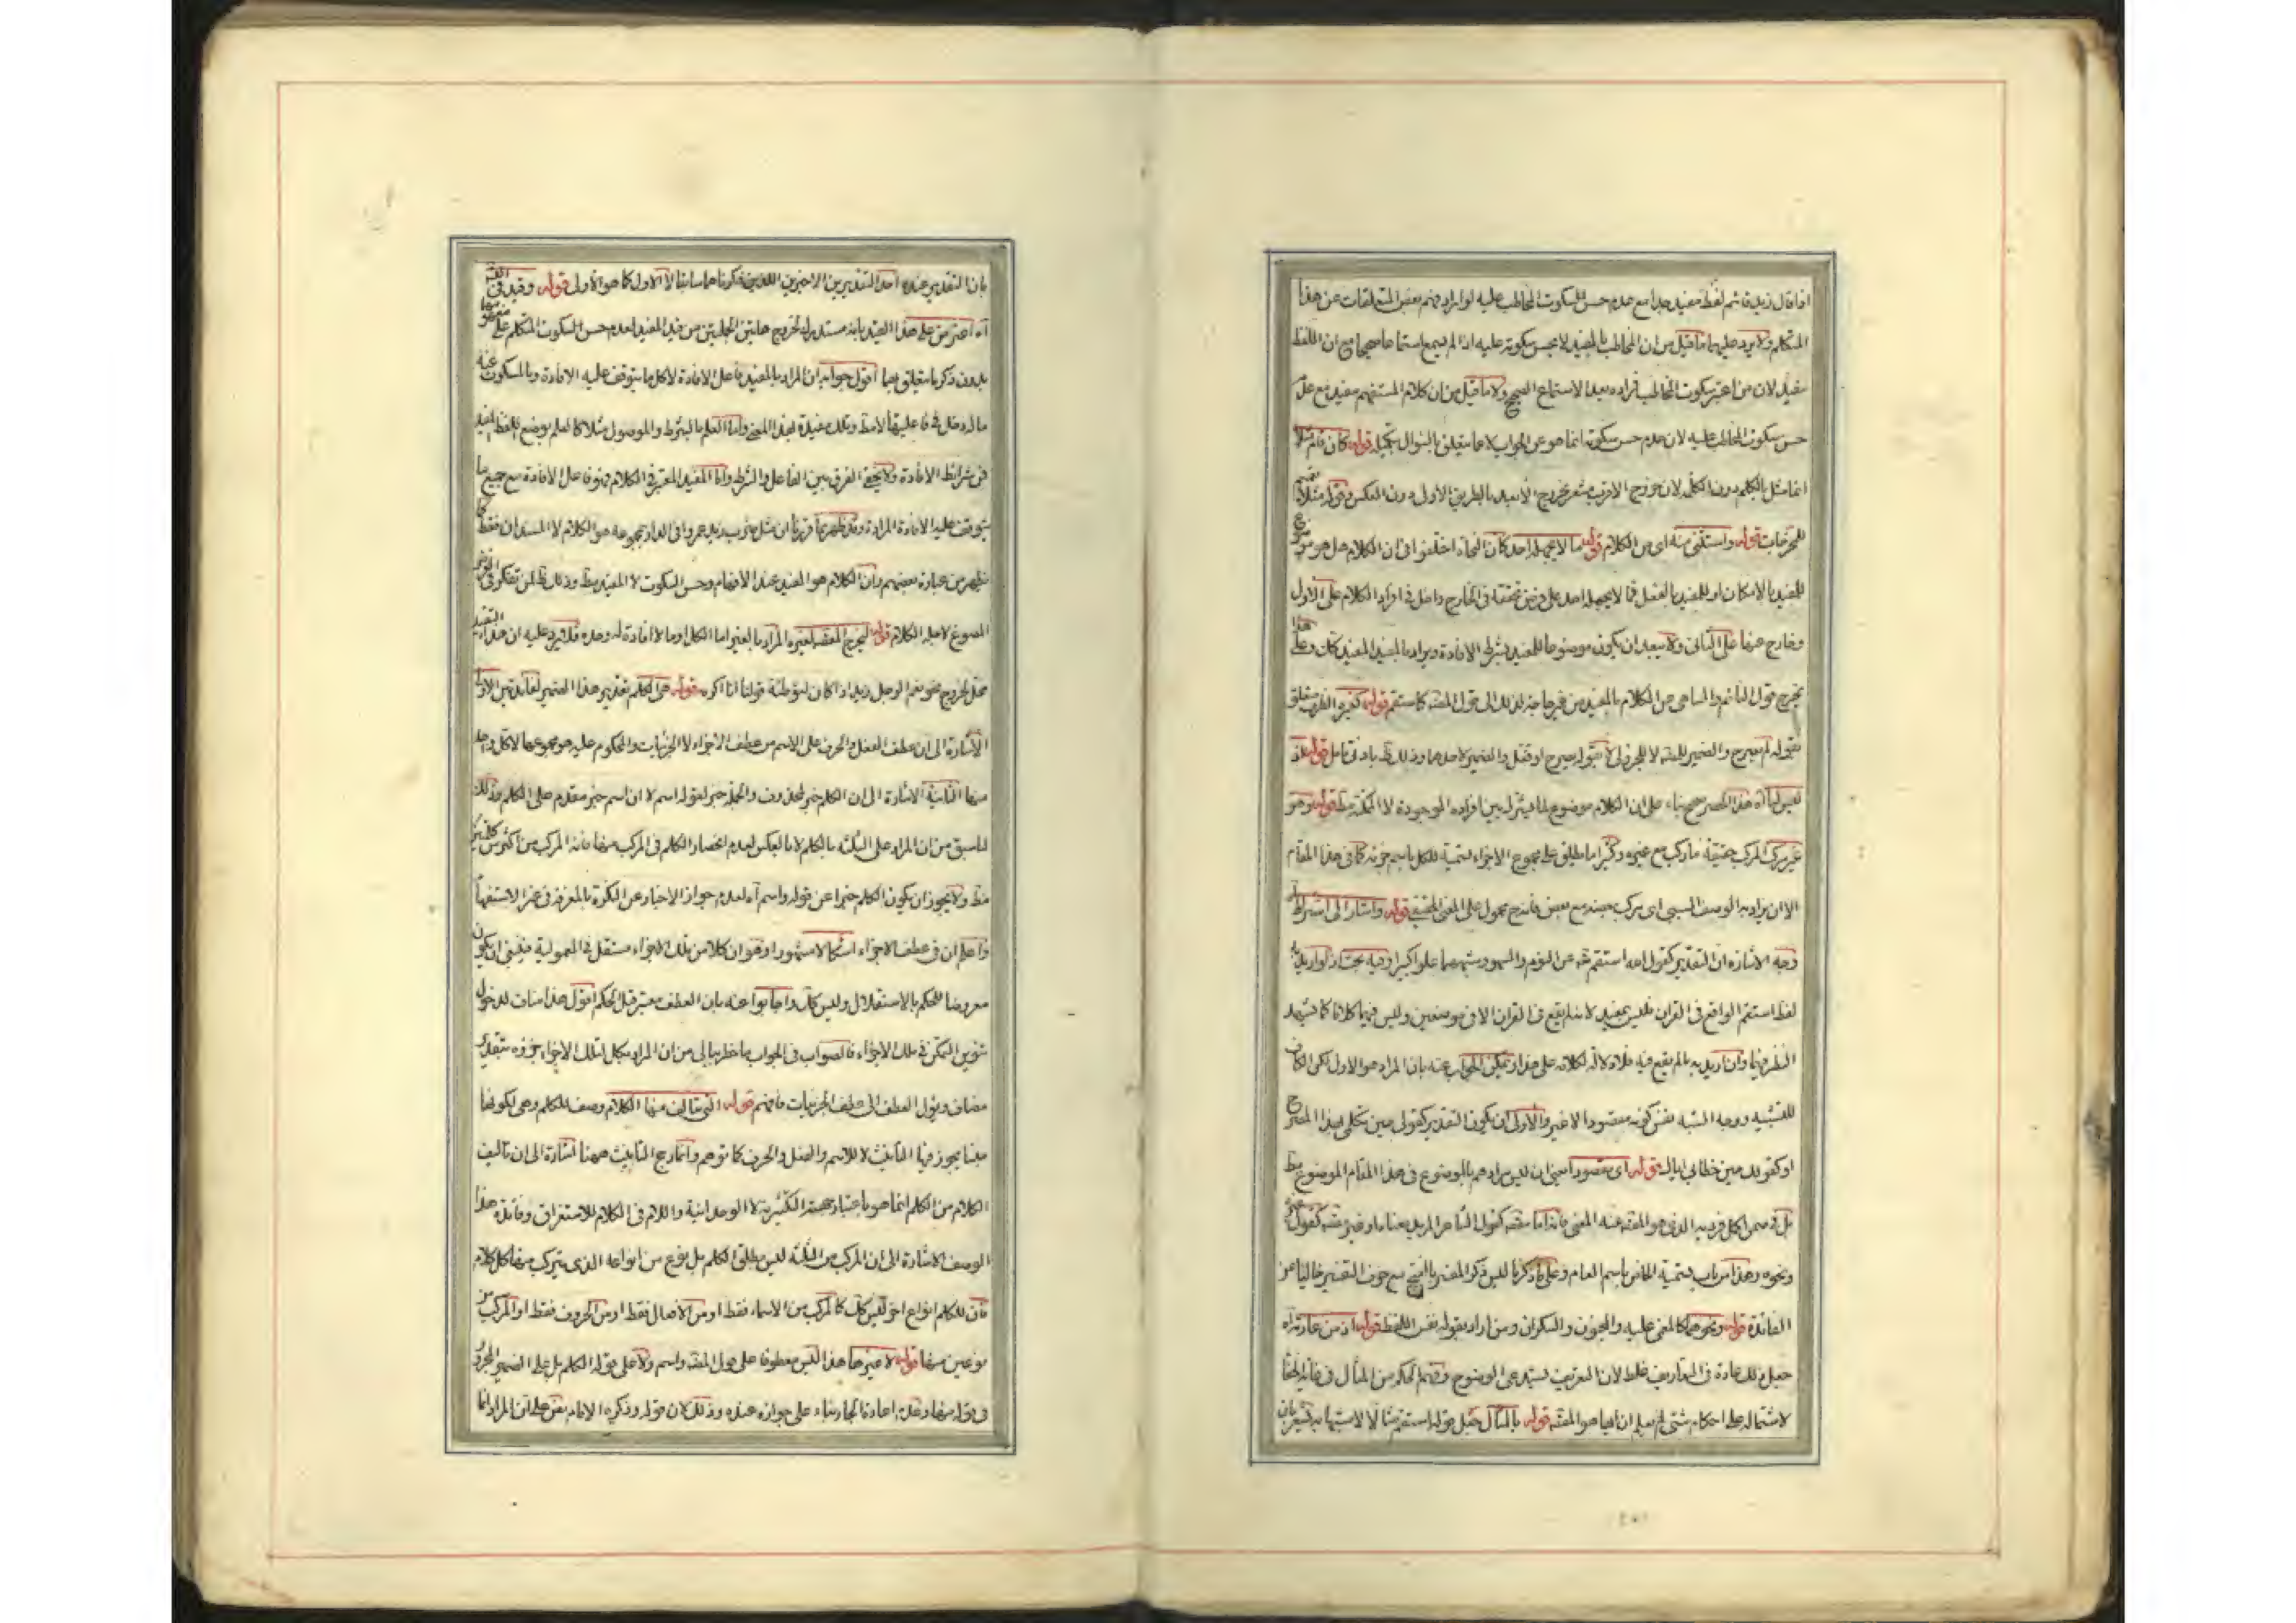 اذا قال زيد قائم لفظ مفيد جدا مع عدم حسن السكوت المخاطب عليه لو اراد فهم بعض المتعلقات عن هذا
المتكلم ولا يرد عليهما ما قيل من ان المخاطب بالمفيد لا يحسن سكوته عليه اذا لم يسمع استماعا صحيحا مع ان اللفظ
مفيد لان من اعتبر سكوت المخاطب اراده بعد الاستماع الصحيح ولا ما قيل من ان كلام المستفهم مفيد مع عدم
حسن سكوت المخاطب عليه لان عدم حسن سكوته انما هو عن الجواب لا عما يتعلق بالسؤال قوله كان قام مثلا
انما مثل بالكلم دون الكلمة لان خروج الاقرب مشعر بخروج الابعد بالطريق الاولى دون العكس وقوله مثلا
للمخرجات قوله واستقنى منه اى من الكلام قوله مما لا يجهله احد كان النحاة اختلفوا فى ان الكلام هل هو موضوع
للمفيد بالامكان او للمفيد بالفعل فما لا يجهله احد على فرض تحققه فى الخارج داخل فى افراد الكلام على الاول
وخارج عنها على الثانى ولا يبعد ان يكون موضوعا للمفيد بشرط الافادة ويراد بالمفيد المفيد كك وعلى هذا
يخرج قول النائم والساهى من الكلام بالمفيد من غير حاجة لذلك الى قول المصنف كاستقم قوله كغيره الظرف متعلق
بقوله لم يصرح والضمير للمصنف لا للجزولى لا بقوله يصرح او فعل والضمير لاحدهما وذلك ظ بادنى تامل قوله اذ
ليس لنا اه هذا الحصر صحيح بناء على ان الكلام موضوع لما يشترك بين افراده الموجودة لا الممكنة قوله وهو
غير مركب المركب حقيقة ما ركب مع غيره وكثيرا ما يطلق على مجموع الاجزاء تسمية للكل باسم جزئه كما فى هذا المقام
الا ان يراد به الوصف السببى اى مركب بعضه مع بعض فانه ح محمول على المعنى الحقيقى قوله واشار الى اشتراط
وجه الاشارة ان التقدير كقول الله استقم عن النوم والسهو وشبههما علوا كبيرا وفيه بحث اذ لو اريد به
لفظ استقم الواقع فى القران فليس بمفيد لانه لم يقع فى القران الا فى موضعين وليس فيهما كلاما كما يشهد
النظر فيهما وان اريد به ما لم يقع فيه فلا دلالة لكلامه على هذا ويمكن الجواب عنه بان المراد هو الاول لكن الكاف
للتشبيه ووجه الشبه نفس كونه مقصودا لا غير والاولى ان يكون التقدير كقولى حين تكلمى بهذا
او كقولك حين خطابى اياك قوله اى مقصودا يعنى ان ليس مرادهم بالوضوع فى هذا المقام الموضوع
بل فى ضمن اكمل فرديه الذى هو
ونحوه وهذا من باب تسمية الخاص باسم العام وعلى ما ذكرنا ليس ذكر المفسر بالفتح مع حرف التفسير خاليا عن
الفائدة قوله ونحوهما كالمغمى عليه والمجنون والسكران ومن اراد بقوله نفس اللفظ قوله اذ من عادته اه
جعل ذلك عادة فى التعاريف غلط لان التعريف يستدعى الوضوح وفهم الحكم من المثال فى غاية الخفاء
لاشتماله على احكام شتى لم يعلم ان ايها هو المقصود قوله بالمثال جعل قوله استقم مثالا لا لاستيفائه يشعر بان
بان التقدير عنده احد التقديرين الاخيرين اللذين ذكرناهما سابقا لا الاول كما هو الاولى قوله وقيد فى
اه اعترض على هذا القيد بانه مستدرك لخروج هاتين الجملتين من قيد المفيد لعدم حسن السكوت المتكلم على
بدون ذكر ما يتعلق بهما اقول جوابه ان المراد بالمفيد فاعل الافادة لا كل ما يتوقف عليه الافادة وبالمسكوت عنه
ما له دخل فى فاعليتها لامط وتلك مفيدة لهذا المعنى واما العلم بالشرط والموصول مثلا كالعلم بوضع اللفظ المفيد
فمن شرائط الافادة ولا يخفى الفرق بين الفاعل والشرط واما المفيد المعتبر فى الكلام فهو فاعل الافادة مع جميع ما
يتوقف عليه الافادة المرادة وقد ظهر بما قررنا ان مثل ضرب زيد عمروا فى الدار مجموعه هو الكلام لا المسندان فقط كما
يظهر من عبارة بعضهم وبان الكلام هو المفيد عند الافهام وحسن السكوت لا المفيد مط وذلك ظ لمن تفكر فى
المصوغ لاجله الكلام قوله ليخرج المقصود لغيره المراد بالغير اما الكل او ما لا افادة له وحده فلا يرد عليه ان هذا
مخل لخروج نعم الرجل زيد اذا كان توطئة قولنا انا اكرمه قوله هى الكلم تقدير هذا الضمير لفائدتين الاولى
الاشارة الى ان عطف الفعل والحرف على الاسم من عطف الاجزاء لا الجزئيات والمحكوم عليه هو مجموعها لا كل واحد
منها الثانية الاشارة الى ان الكلم خبر لمحذوف والجملة خبر لقوله اسم لا ان اسم خبر مقدم على الكلم وذلك
لما سبق من ان المراد على الثلثة بالكلم لا بالعكس لعدم انحصار الكلم فى المركب منها فانه المركب من اكثر من كلمتين
مط ولا يجوز ان يكون الكلم خبرا عن قوله واسم اه لعدم جواز الاخبار عن النكرة بالمعرفة فى غير الاستفهام
واعلم ان فى عطف الاجزاء اشكالا مشهورا وهو ان كلا من تلك الاجزاء مستقل فى المعمولية فينبغى ان يكون
معروضا للحكم بالاستقلال وليس كك واجابوا عنه بان العطف معتبر قبل الحكم اقول هذا مناف لدخول
تنوين التمكن فى تلك الاجزاء فالصواب فى الجواب ما خطر ببالى من ان المراد بكل لتلك الاجزاء جزؤه بتقدير
مضاف ويؤل العطف الى عطف الجزئيات فافهم قوله التى يتالف منها الكلام وصف للكلم وهى لكونها
جنسا يجوز فيها التانيث لا للاسم والفعل والحرف كما توهم وانما رجح التانيث ههنا اشارة الى ان تاليف
الكلام من الكلم انما هو باعتبار جهته الكثيرية لا الوحدانية واللام فى الكلام للاستغراق وفائدة هذا
الوصف الاشارة الى ان المركب من الثلثة ليس مطلق الكلم بل نوع من انواعه الذى يتركب منها كل كلام
فان للكلم انواع اخر ليس كك كالمركب من الاسماء فقط او من الافعال فقط او من الحروف فقط او المركب من
نوعين منها قوله لا غيرها هذا ليس معطوفا على قول المصنف واسم ولا على قوله الكلم بل على الضمير المجرور
فى قوله منها وعدم اعادة الجار بناء على جوازه عنده وذلك لان قوله وذكره الامام نص على ان المراد انما